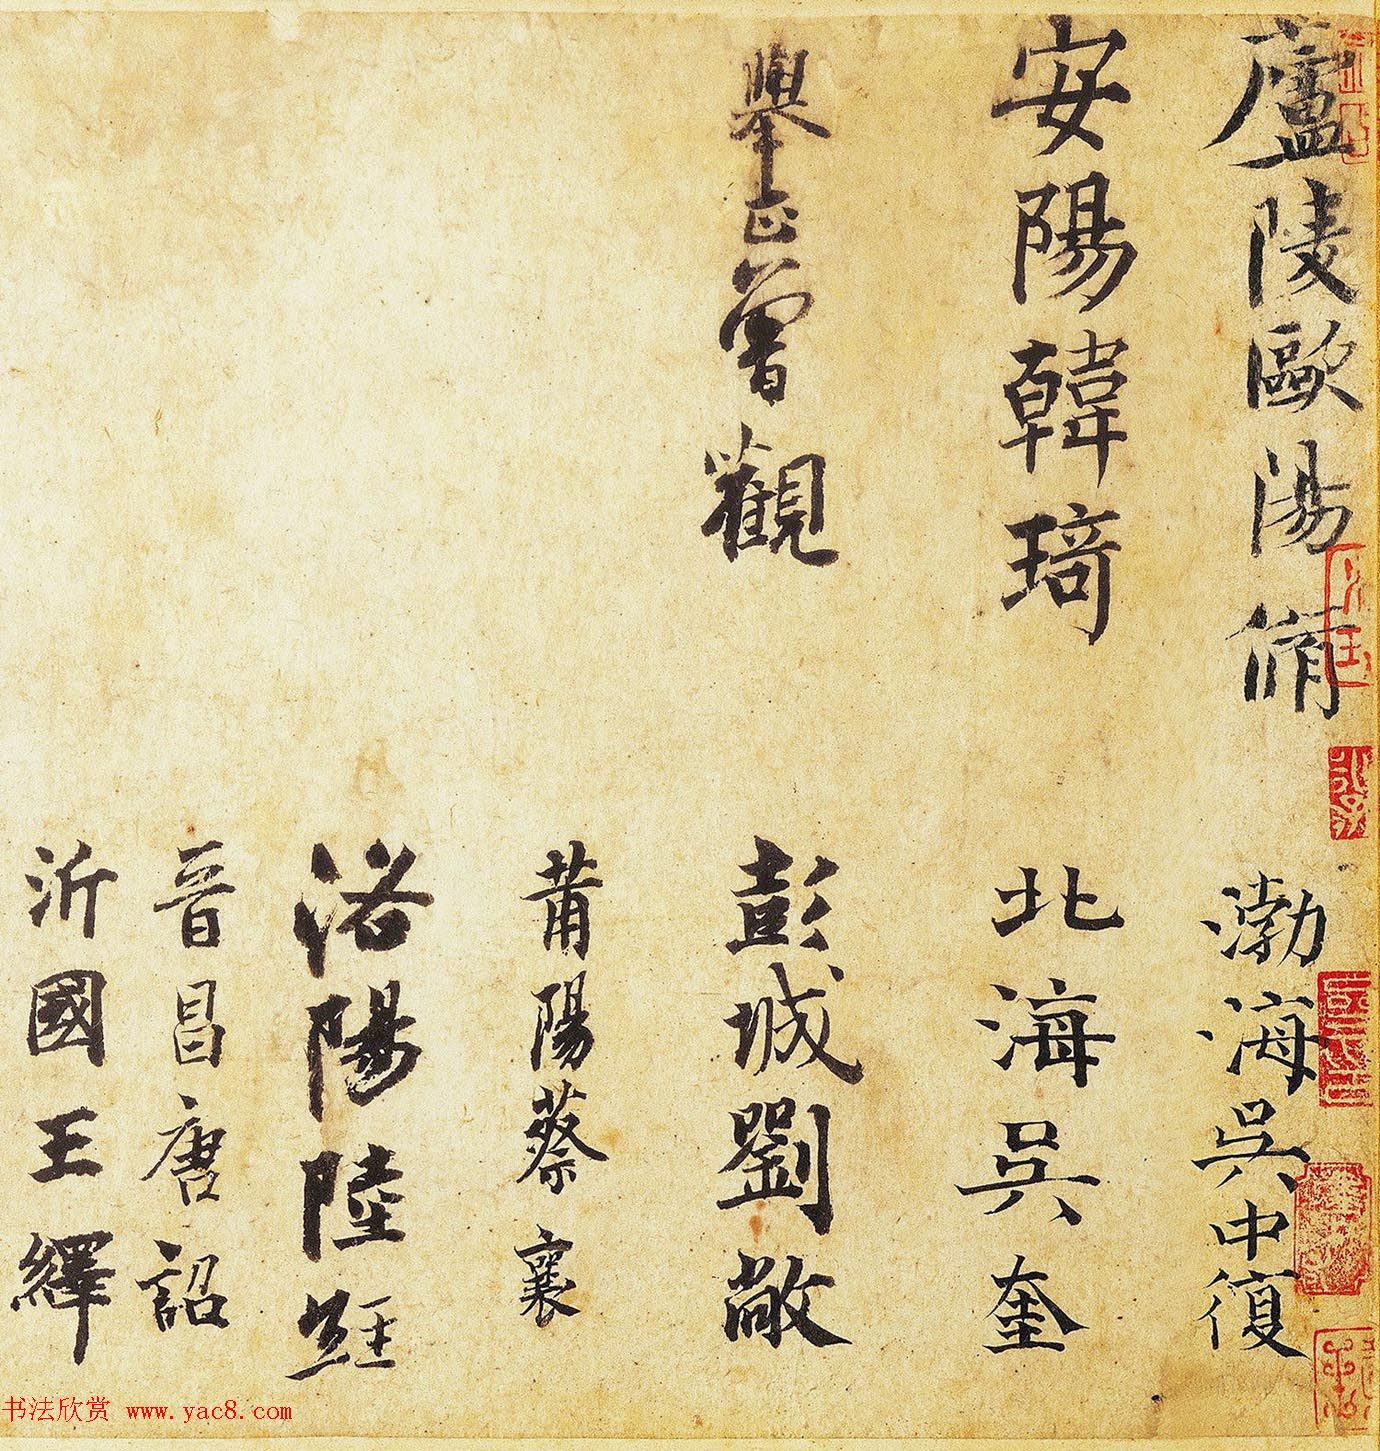 廬陵歐陽脩
渤海吳中復
安陽韓琦
北海吳奎
舉正曾觀
彭城劉敞
莆陽蔡襄
洛陽陸經
晉昌唐詔
沂國王繹
书法欣赏 www.yac8.com